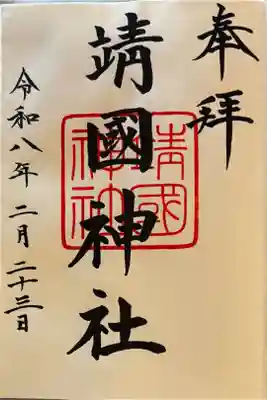 奉拝
靖國神社
靖國
神社
令和八年 二月 二十三日